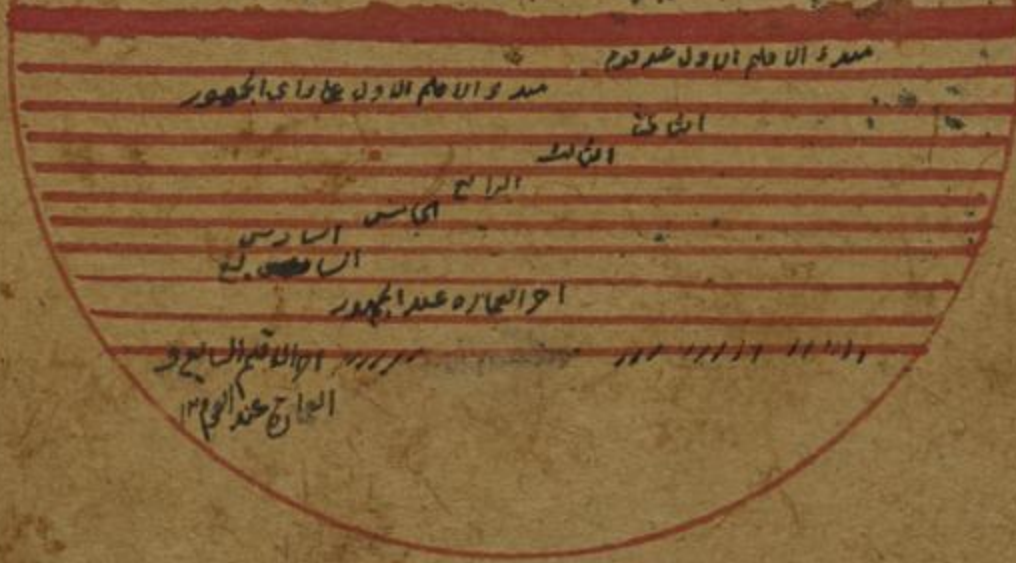 مبدء الاقليم الاول عند قوم
مبدء الاقليم الاول على راى الجمهور
الثانى
الثالث
الرابع
الخامس
السادس
السابع
اخر العمارة عند الجمهور
اخر الاقليم السابع و
العمارة عند